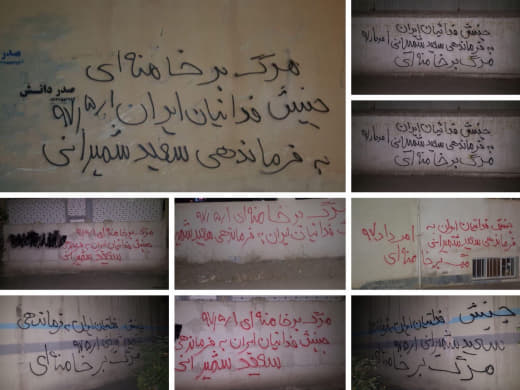 مرگ بر خامنه‌ای
جنبش فدائیان ایران ۹۷/۵/۱
به فرماندهی سعید شمیرانی
صدر دانش
صدر
جنبش فدائیان ایران
به فرماندهی سعید شمیرانی
مرگ بر خامنه‌ای
جنبش فدائیان ایران
به فرماندهی سعید شمیرانی
مرگ بر خامنه‌ای
مرگ بر خامنه‌ای
جنبش فدائیان ایران به فرماندهی
سعید شمیرانی
مرگ بر خامنه‌ای
فدائیان ایران به فرماندهی سعید
جنبش فدائیان ایران به
فرماندهی سعید شمیرانی
مرگ بر خامنه‌ای
امرداد ۹۷
جنبش فدائیان ایران به فرماندهی
سعید شمیرانی
مرگ بر خامنه‌ای
مرگ بر خامنه‌ای
جنبش فدائیان ایران به فرماندهی
سعید شمیرانی
جنبش فدائیان ایران به
سعید شمیرانی
مرگ بر خامنه‌ای